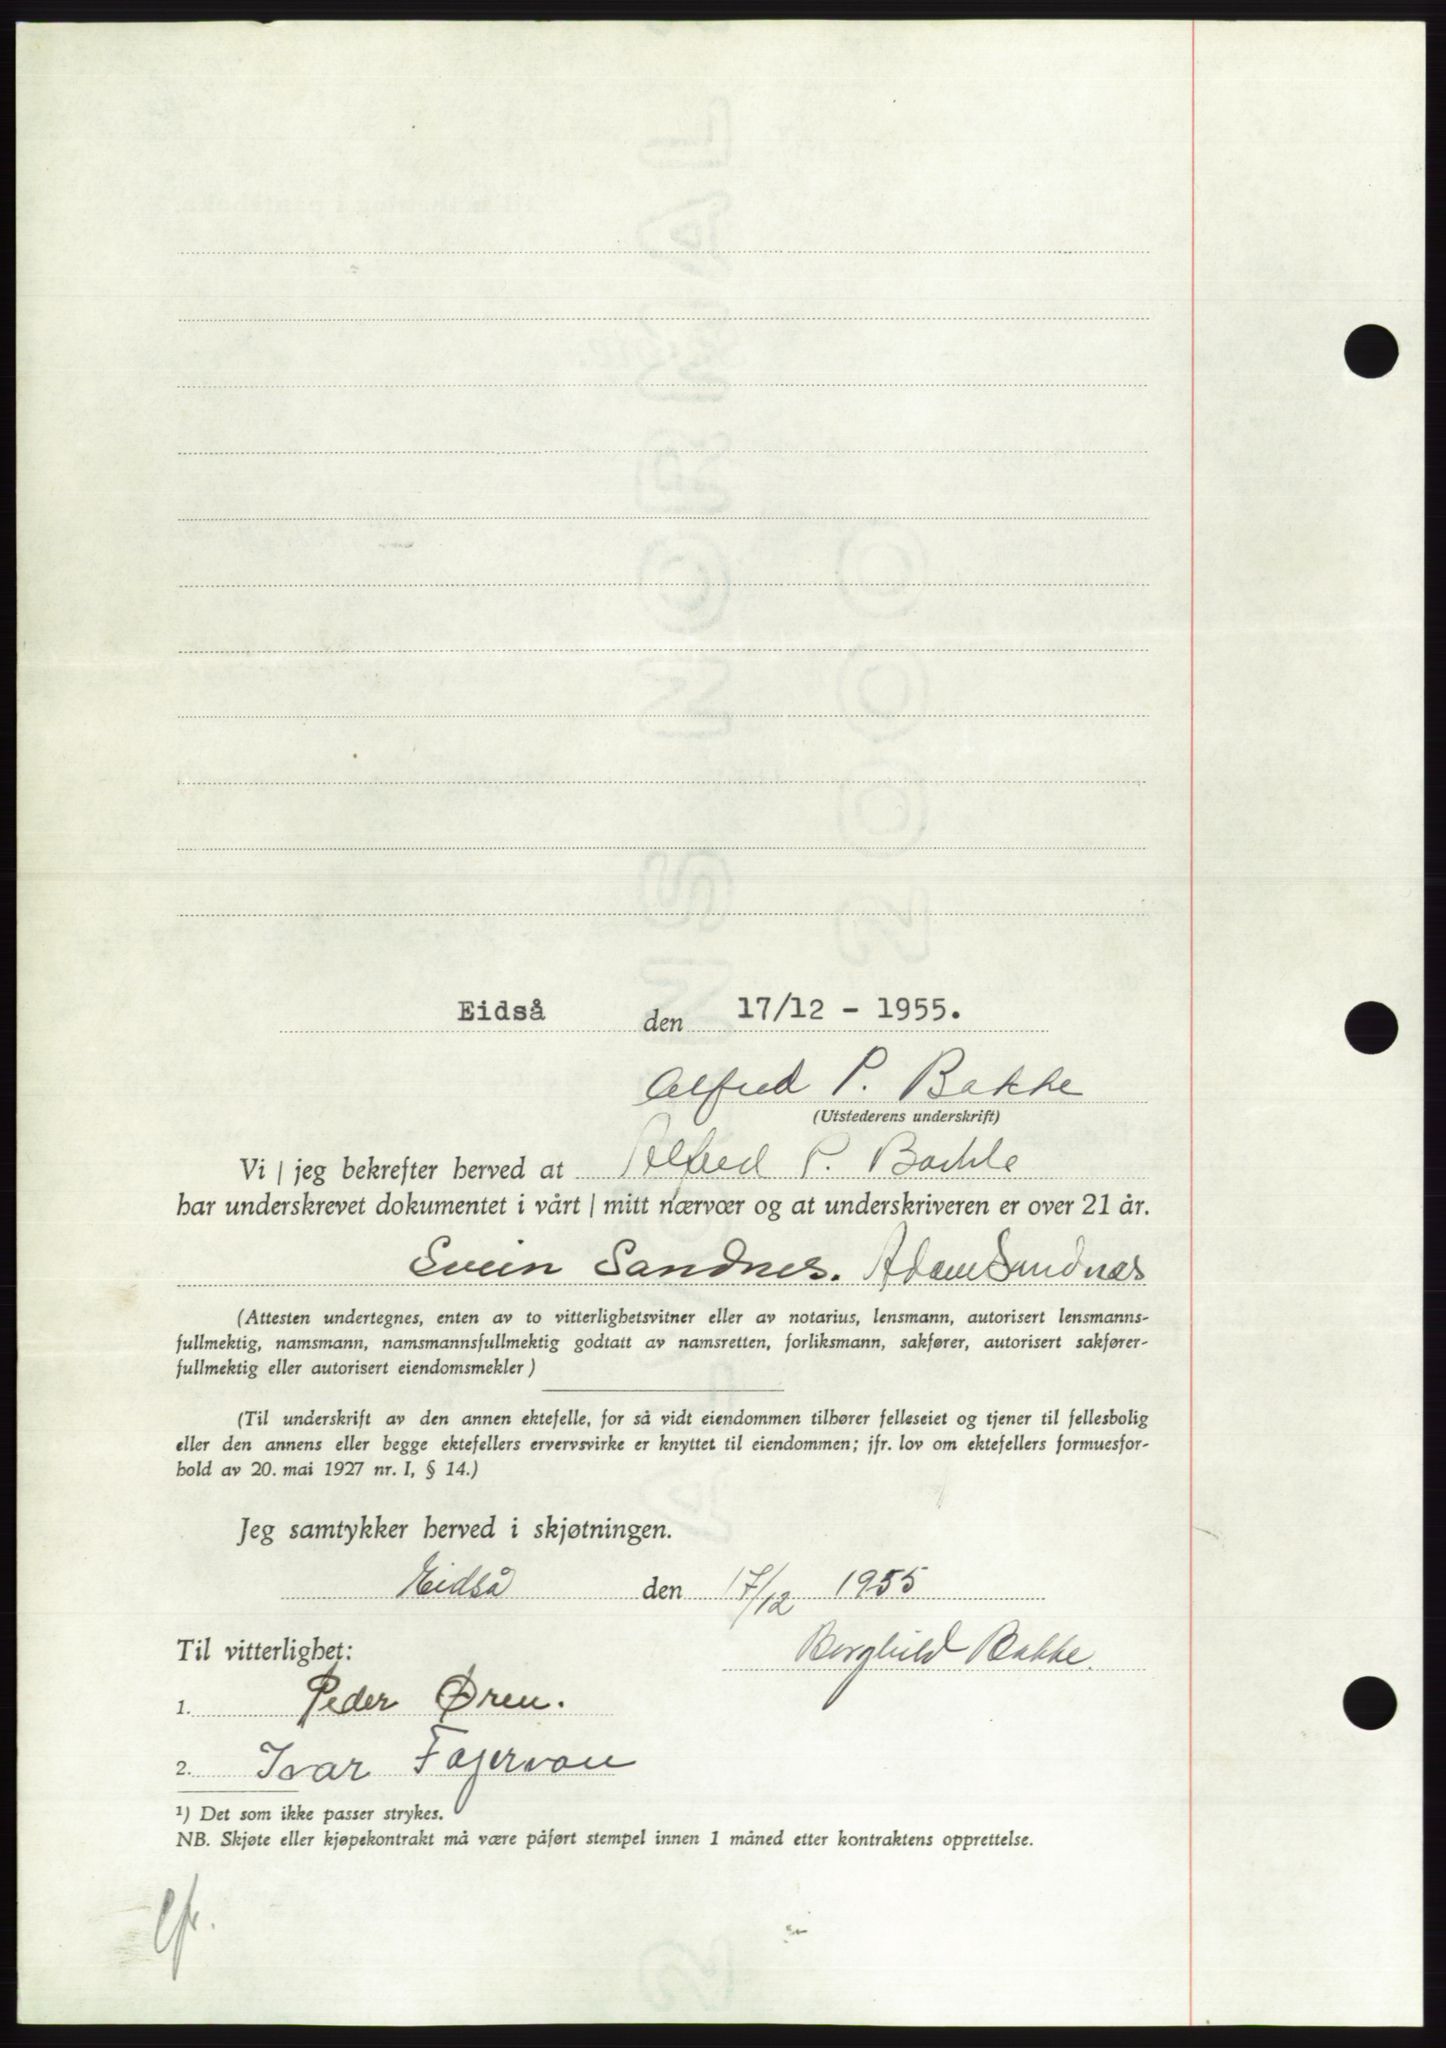 Eidså den 17/12 - 1955.
Alfred P. Bakke
(Utstederens underskrift)
Vi / jeg bekrefter herved at Alfred P. Bakke
har underskrevet dokumentet i vårt / mitt nærvær og at underskriveren er over 21 år.
Svein Sandnes. Adam Sandnes
(Attesten undertegnes, enten av to vitterlighetsvitner eller av notarius, lensmann, autorisert lensmanns-
fullmektig, namsmann, namsmannsfullmektig godtatt av namsretten, forliksmann, sakfører, autorisert sakfører-
fullmektig eller autorisert eiendomsmekler)
(Til underskrift av den annen ektefelle, for så vidt eiendommen tilhører felleseiet og tjener til fellesbolig
eller den annens eller begge ektefellers ervervsvirke er knyttet til eiendommen; jfr. lov om ektefellers formuesfor-
hold av 20. mai 1927 nr. I, § 14.)
Jeg samtykker herved i skjøtningen.
Eidså den 17/12 1955
Til vitterlighet: Borghild Bakke.
1. Peder Øren.
2. Ivar Fagervoll
¹) Det som ikke passer strykes.
NB. Skjøte eller kjøpekontrakt må være påført stempel innen 1 måned etter kontraktens opprettelse.